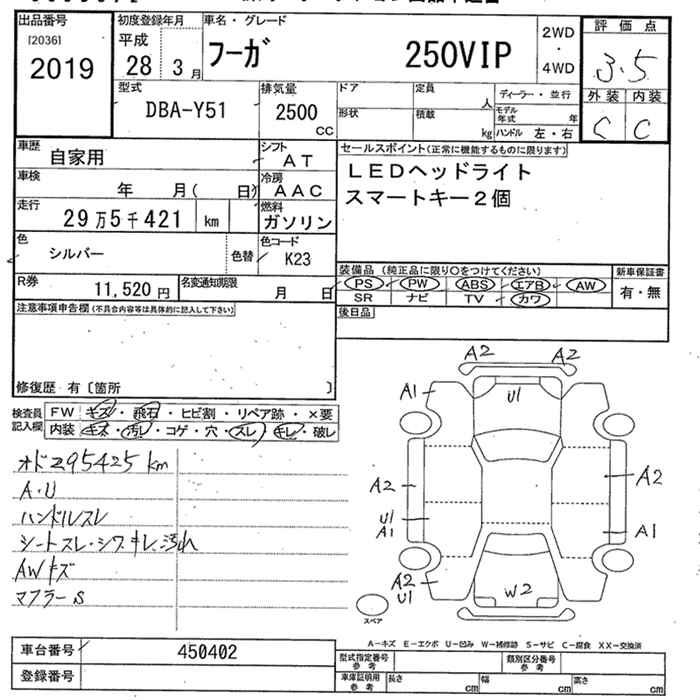 出品番号 初度登録年月 車名・グレード 評価点
[2036]
2019 平成 28 3月 フーガ 250VIP 2WD・4WD 3.5
外装 内装
C C
型式 DBA-Y51 排気量 2500 CC ドア 定員 人 ディーラー・並行
形状 積載 kg モデル年式 年
ハンドル 左・右
車歴 自家用 シフト AT セールスポイント(正常に機能するものに限ります)
車検 年 月( 日) 冷房 AAC LEDヘッドライト
走行 29万5千421 km 燃料 ガソリン スマートキー2個
色 シルバー 色替 色コード K23
R券 11,520円 名変通知期限 月 日 装備品(純正品に限り○をつけてください) 新車保証書
PS PW ABS エアB AW 有・無
SR ナビ TV カワ
注意事項申告欄(不具合内容等は具体的に記入して下さい) 後日品
修復歴 有〔箇所 〕
検査員記入欄 FW キズ・飛石・ヒビ割・リペア跡・×要
内装 キズ・汚レ・コゲ・穴・スレ・キレ・破レ
オド295425km
A・U
ハンドルスレ
シートスレ・シワ・キレ、汚れ
AWキズ
マフラーS
A2 A2
A1 U1
A2 A2
U1
A1 A1
A2
U1 W2
スペア
A-キズ E-エクボ U-凹み W-補修跡 S-サビ C-腐食 XX-交換済
車台番号 450402 型式指定番号 参考 類別区分番号 参考
登録番号 車庫証明用 参考 長さ cm 幅 cm 高さ cm